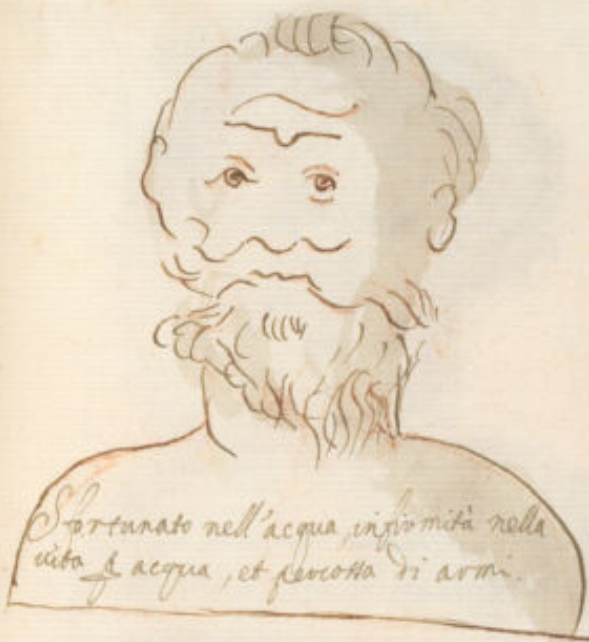 Sfortunato nell'acqua, infirmità nella
vita p acqua, et percossa di armi.